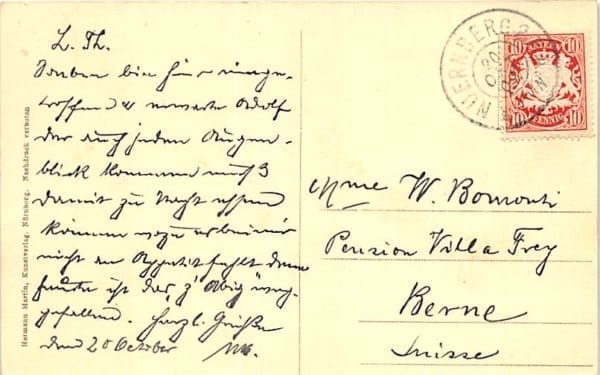 L. Th.
Soeben bin hier einge-
troffen u erwarte Adolf
der auch jeden Augen-
blick kommen muss
damit zu Nacht essen
können wozu es bei mir
nicht an Appetit fehlt denn
heute ist das z'Abig
gefallend. Herzl. Grüße
den 20 October
Hermann Martin, Kunstverlag, Nürnberg. Nachdruck verboten
NUERNBERG 2
20
BAYERN
10 10
10 10
PFENNIG
Mme W. Bomonti
Pension Villa Frey
Berne
Suisse